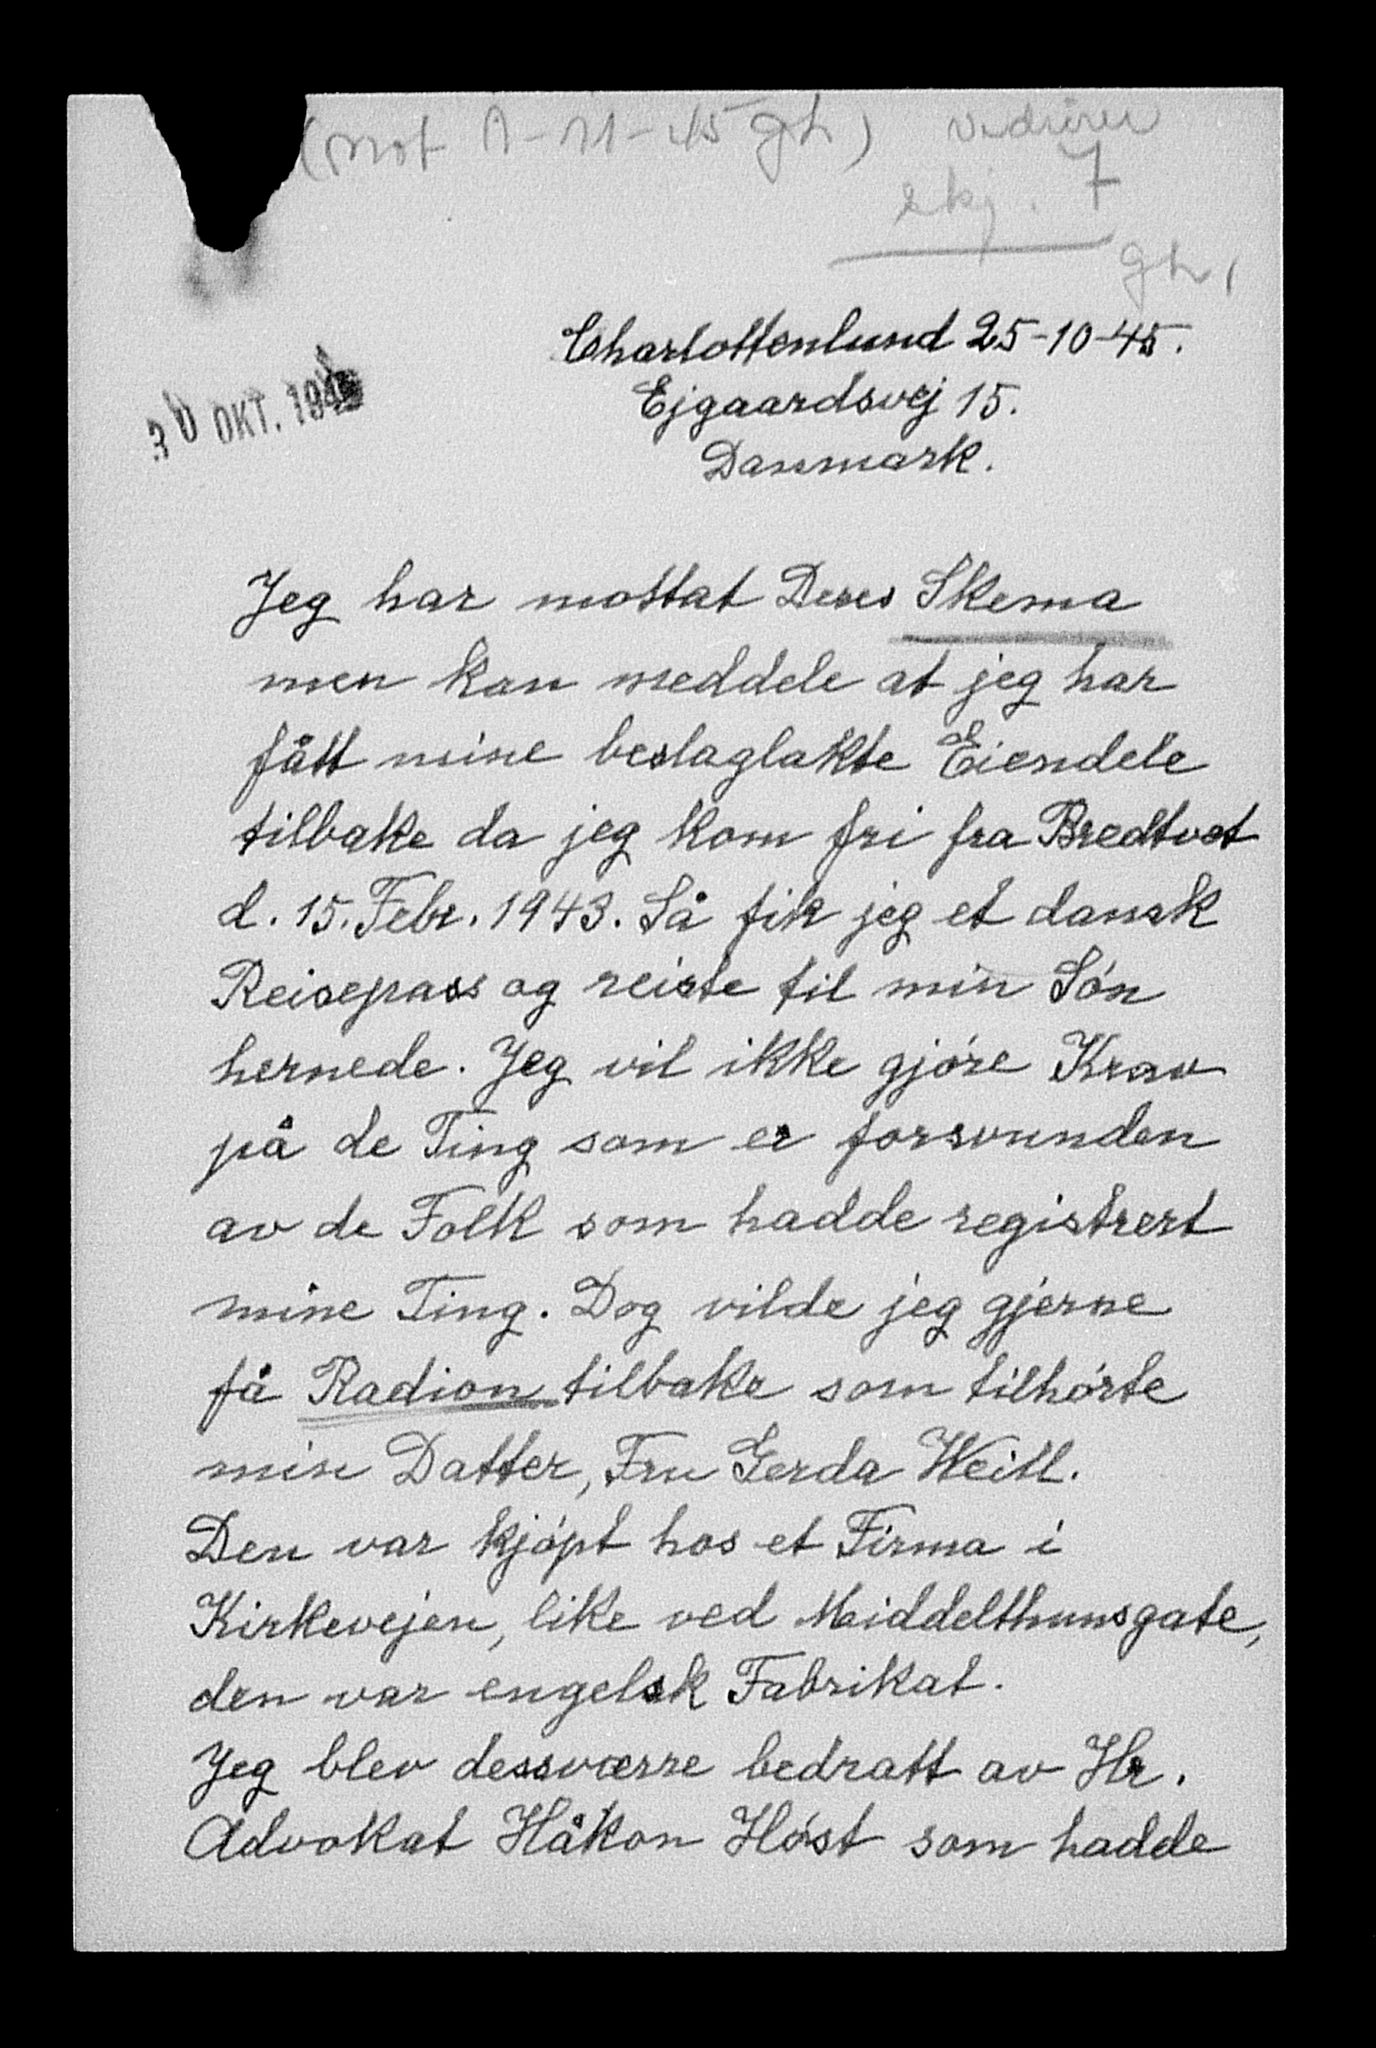 (mot 1-11-45 gh) vedrører
skj. 7
gh,
Charlottenlund 25-10-45.
Ejgaardsvej 15.
Danmark.
30 OKT. 1945
Jeg har mottat Deres Skema
men kan meddele at jeg har
fått mine beslaglakte Eiendele
tilbake da jeg kom fri fra Bredtvet
d. 15. Febr. 1943. Så fik jeg et dansk
Reisepass og reiste til min Són
hernede. Jeg vil ikke gjóre Krav
på de Ting som er forsvunden
av de Folk som hadde registrert
mine Ting. Dog vilde jeg gjerne
få Radion tilbake som tilhórte
min Datter, Fru Gerda Weitl.
Den var kjópt hos et Firma i
Kirkevejen, like ved Middelthunsgate,
den var engelsk Fabrikat.
Jeg blev dessværre bedratt av Hr.
Advokat Håkon Hóst som hadde